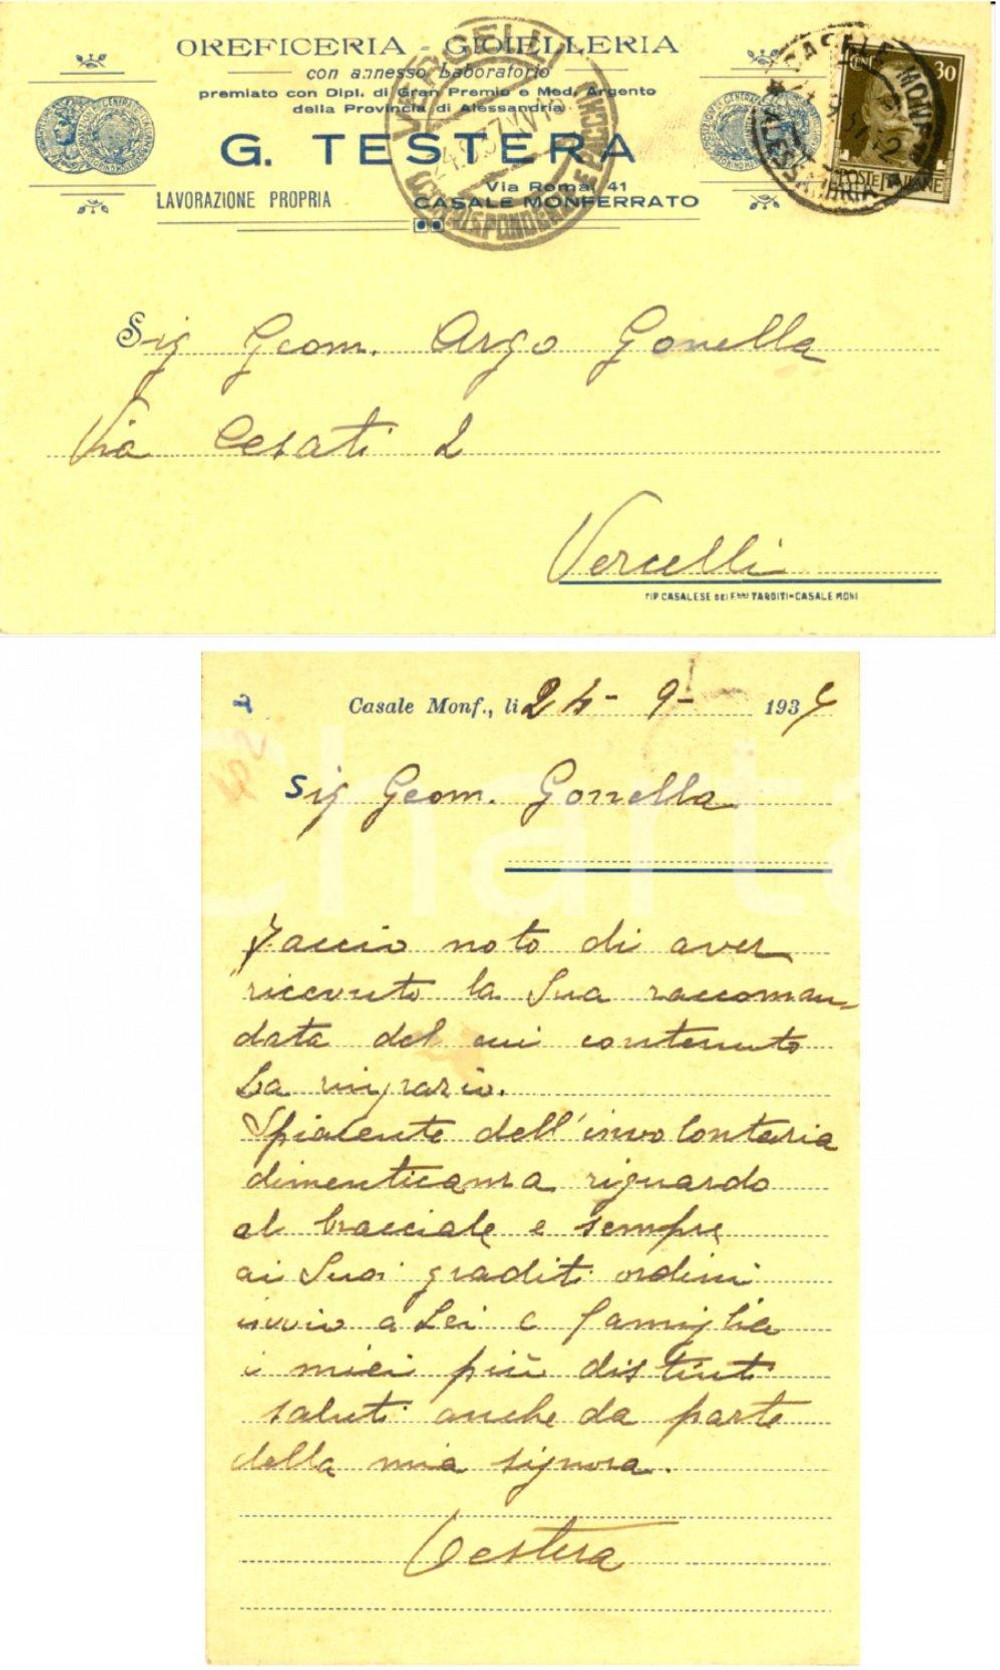 OREFICERIA - GIOIELLERIA
con annesso Laboratorio
premiato con Dipl. di Gran Premio e Med. Argento
della Provincia di Alessandria
G. TESTERA
LAVORAZIONE PROPRIA
Via Roma, 41
CASALE MONFERRATO
VERCELLI
CORRISPONDENZE
24.9.37.XV
CASALE MONF
ALESSANDRIA
CENT 30
POSTE ITALIANE
Sig Geom. Argo Gonella
Via Cesati 2
Vercelli
TIP CASALESE DEI F.LLI TARDITI-CASALE MONF
Casale Monf., li 24-9-1937
Sig Geom. Gonella
Faccio noto di aver
ricevuto la Sua raccoman-
data del cui contenuto
La ringrazio.
Spiacente dell'involontaria
dimenticanza riguardo
al bracciale e sempre
ai Suoi graditi ordini
invio a Lei e famiglia
i miei più distinti
saluti anche da parte
della mia signora.
Testera
Charta